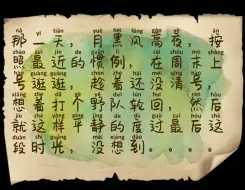 nà yì tiān yuè hēi fēng gāo yè àn
那一天，月黑风高夜，按
zhào zuì jìn de guàn lì zài zhōu mò shàng
照最近的惯例，在周末上
hào guàng guàng chèn zhe hái méi qīng hào
号逛逛，趁着还没清号，
xiǎng zhe dǎ gè yě duì lún huí rán hòu
想着打个野队轮回，然后
jiù zhè yàng píng jìng de dù guò zuì hòu zhè
就这样平静的度过最后这
duàn shí guāng méi xiǎng dào
段时光，没想到。。。。